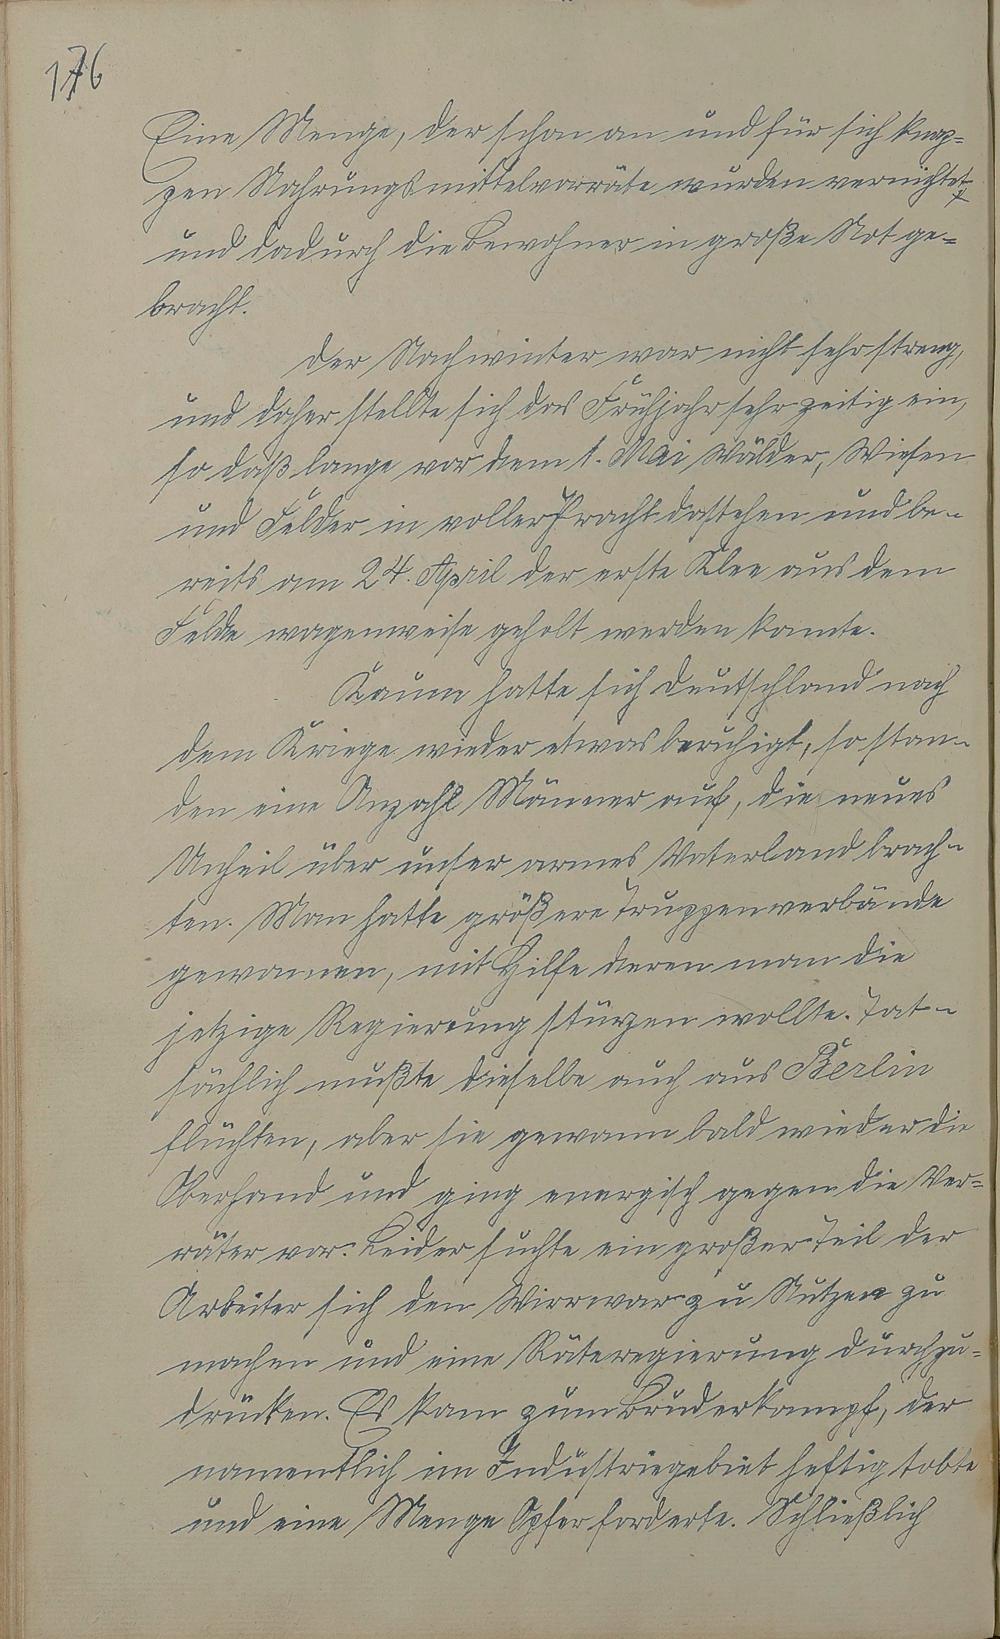 176
Eine Menge, der schon an und für sich knap=
pen Nahrungsmittelvorräte wurden vernichtet
und dadurch die Bewohner in große Not ge=
bracht.
Der Nachwinter war nicht sehr streng,
und daher stellte sich das Frühjahr sehr zeitig ein,
so daß lange vor dem 1. Mai Wälder, Wiesen
und Felder in voller Pracht dastehen und be-
reits am 24. April der erste Klee aus dem
Felde wagenweise geholt werden konnte.
Kaum hatte sich Deutschland nach
dem Kriege wieder etwas beruhigt, so stan-
den eine Anzahl Männer auf, die neues
Unheil über unser armes Vaterland brach-
ten. Man hatte größere Truppenverbände
gewonnen, mit Hilfe deren man die
jetzige Regierung stürzen wollte. Tat-
sächlich mußte dieselbe auch aus Berlin
flüchten, aber sie gewann bald wieder die
Oberhand und ging energisch gegen die Ver=
räter vor. Leider suchte ein großer Teil der
Arbeiter sich den Wirrwar zu Nutzen zu
machen und eine Räteregierung durchzu=
drücken. Es kam zum Bruderkampf, der
namentlich im Industriegebiet heftig tobte
und eine Menge Opfer forderte. Schließlich